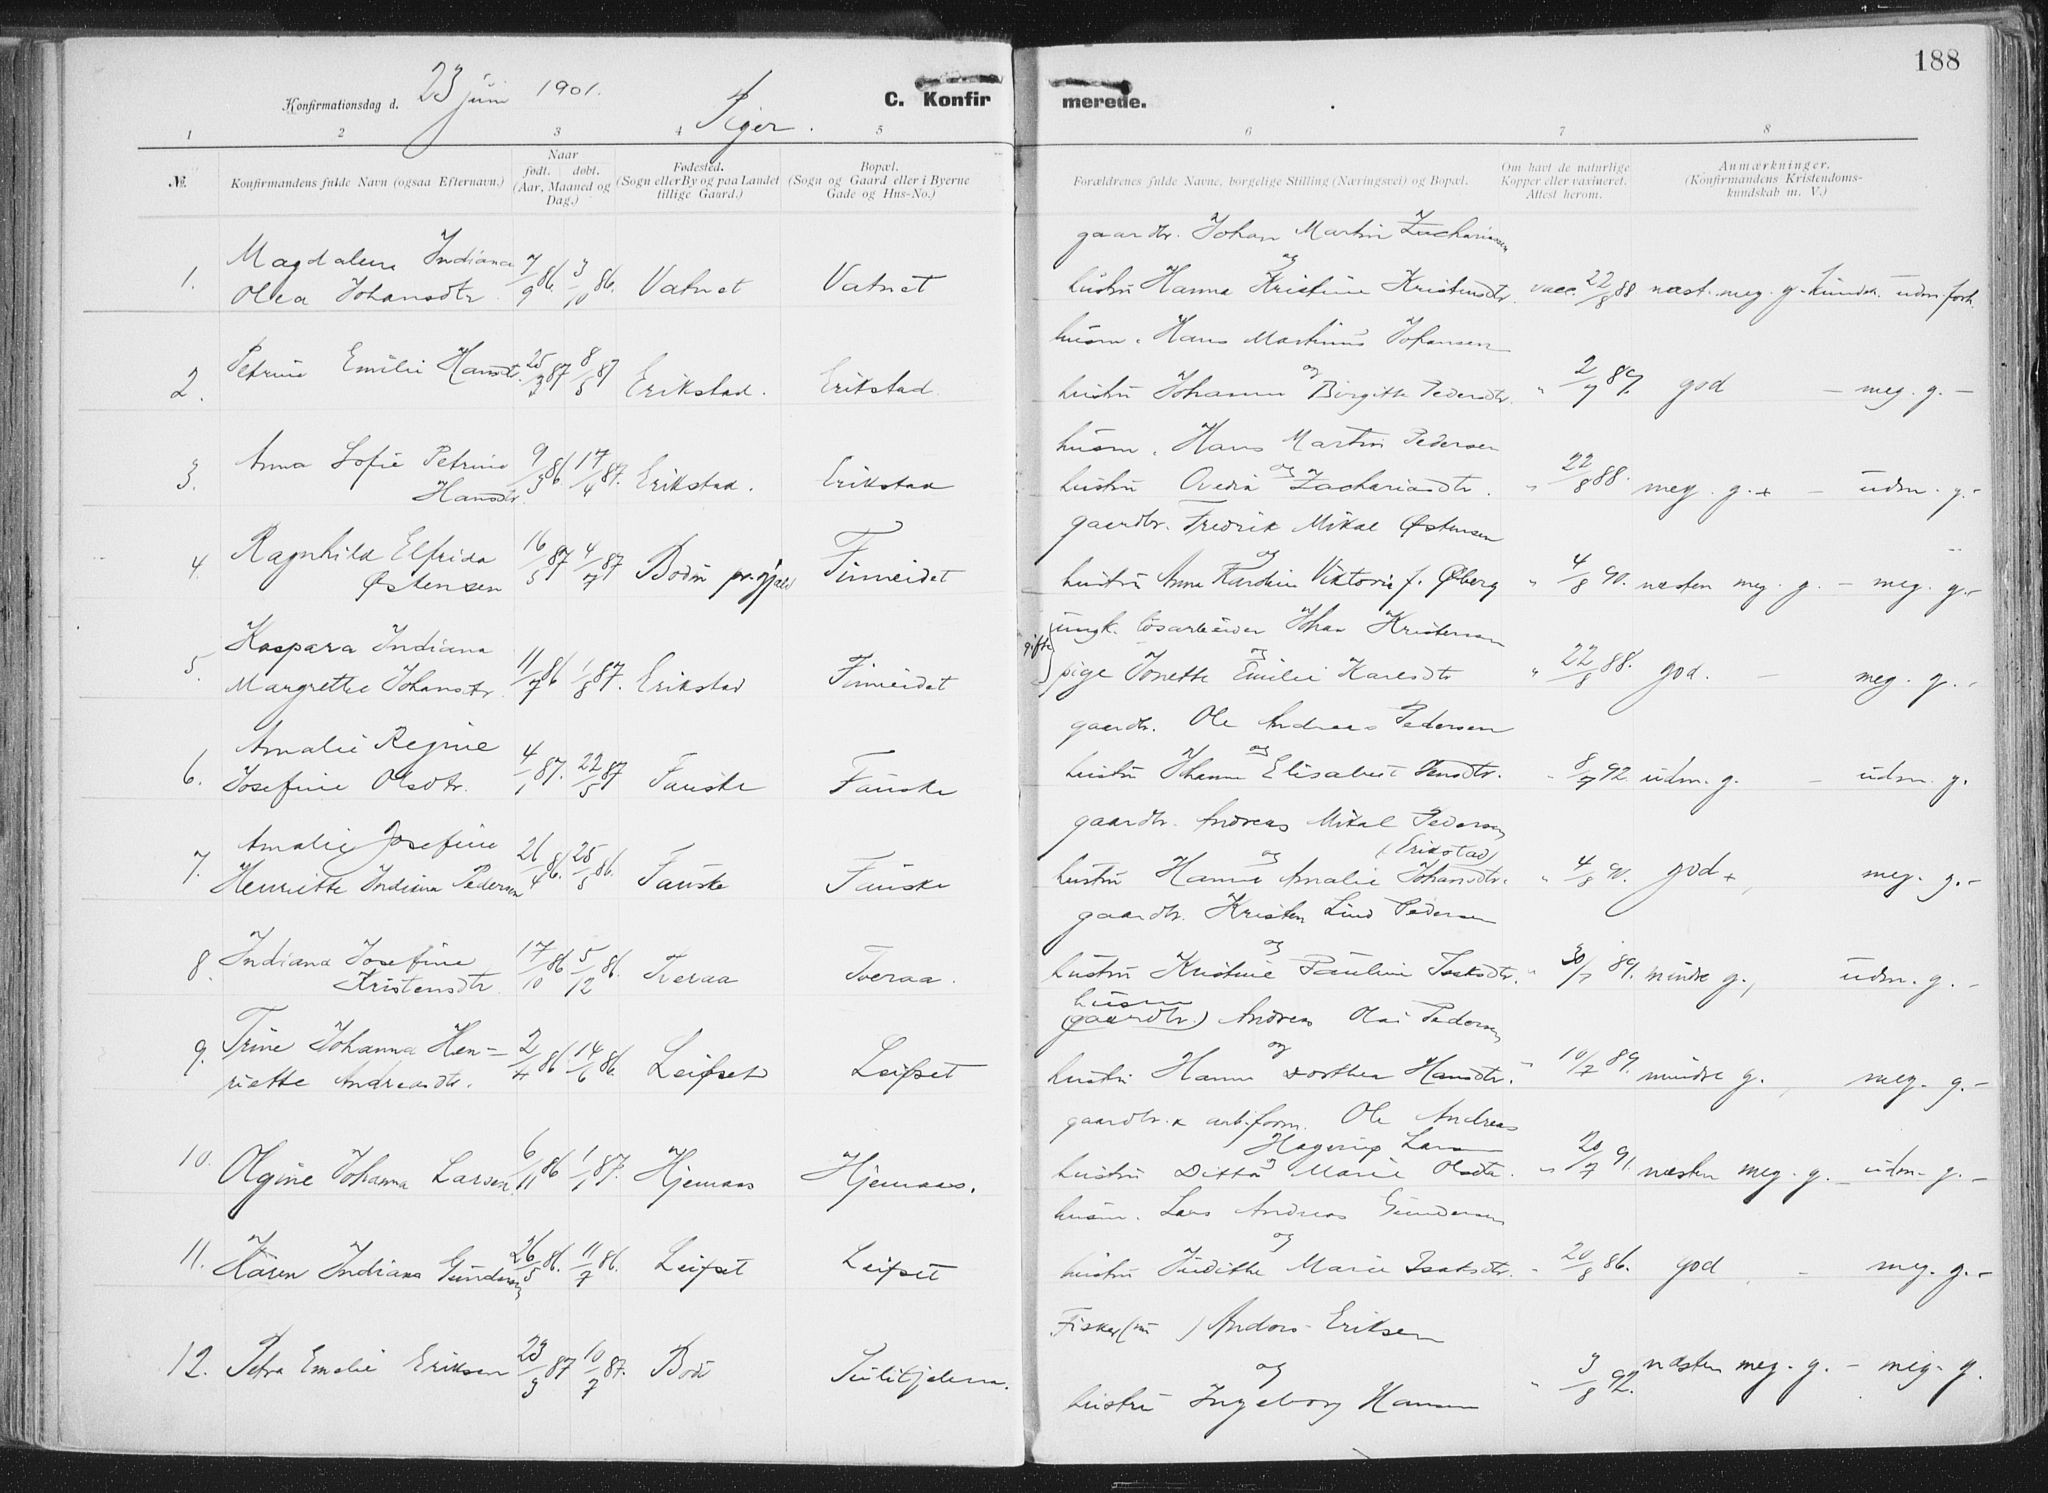 188
Konfirmationsdag d. 23 juni 1901.
Piger.
C. Konfirmerede.
1 2 3 4 5 6 7 8
№. Konfirmandens fulde Navn (ogsaa Efternavn.) Naar født. døbt. (Aar, Maaned og Dag.) Fødested. (Sogn eller By og paa Landet tillige Gaard.) Bopæl. (Sogn og Gaard eller i Byerne Gade og Hus-No.) Forældrenes fulde Navne, borgelige Stilling (Næringsvei) og Bopæl. Om havt de naturlige Kopper eller vaxineret. Attest herom. Anmærkninger. (Konfirmandens Kristendomskundskab m. V.)
gaardbr. Johan Martin Zachariassen
og
1. Magdalena Indiana
Olea Johansdtr. 7/9 86. 3/10 86. Vatnet Vatnet hustru Hanna Kristine Kristensdtr. vacc. 22/8 88 næst. meg. g. kundsk. udm. forh.
husm. Hans Martinus Johansen
og
2. Petrine Emilie Hansdtr. 25/3 87 8/5 87 Erikstad. Erikstad. hustru Johanna Birgitte Pedersdtr. " 2/7 89. god - meg. g. -
husm. Hans Martin Pedersen
og
3. Anna Sofie Petrine
Hansdtr. 9/3 86. 17/4 87. Erikstad. Erikstad hustru Ovedia Zachariasdtr. " 22/8 88. meg. g. + - udm. g. -
gaardbr. Fredrik Mikal Østensen
og
4. Ragnhild Elfrida
Østensen 16/5 87 4/7 87 Bodin pr.gjæld Finneidet hustru Anna Karoline Viktoria f. Øberg " 4/8 90. næsten meg. g. - meg. g. -
gifte ungk. løsarbeider Johan Kristensen
og
5. Kaspara Indiana
Margrethe Johansdtr. 11/7 86 1/8 87. Erikstad Finneidet pige Jonette Emilie Karlsdtr " 22/8 88. god. - meg. g. -
gaardbr. Ole Andreas Pedersen
og
6. Amalie Regine
Josefine Olsdtr. 4/1 87. 22/5 87 Fauske Fauske hustru Johanna Elisabeth Hansdtr. " 8/7 92. udm. g. - udm. g.
gaardbr. Andreas Mikal Pedersen
(Erikstad)
og
7. Amalie Josefine
Henriette Indiana Pedersen 26/4 86. 25/5 86. Fauske Fauske hustru Hanna Amalie Johansdtr. " 4/8 90. god +, meg. g. -
gaardbr. Kristen Lind Pedersen
og
8. Indiana Josefine
Kristensdtr. 17/10 86 5/12 86. Tveraa Tveraa. hustru Kristine Pauline Isaksdtr. " 30/7 89. mindre g., udm. g. -
husm
(gaardbr.) Andreas Olai Pedersen
og
9. Trine Johanna Hen-
riette Andreasdtr. 2/4 86 14/6 86. Leifset Leifset hustru Hanna Dorthea Hansdtr. " 10/7 89. mindre g., meg. g. -
gaardbr. & arb.form. Ole Andreas
Hagerup Larsen
og
10. Olgine Johanna Larsen 6/11 86 1/1 87. Hjemaas Hjemaas. hustru Ditta Marie Olsdtr. " 20/7 91. næsten meg. g. - udm. g. -
husm. Lars Andreas Gundersen
og
11. Karen Indiana Gundersen 26/5 86. 11/7 86. Leifset Leifset hustru Judithe Marie Isaksdtr. " 20/8 86. god - meg. g. -
Fisker Anders Eriksen
og
12. Petra Emelie Eriksen 23/3 87 10/7 87. Bodø Sulitjelma. hustru Ingeborg Hansen " 3/8 92. næsten meg. g. - meg. g.